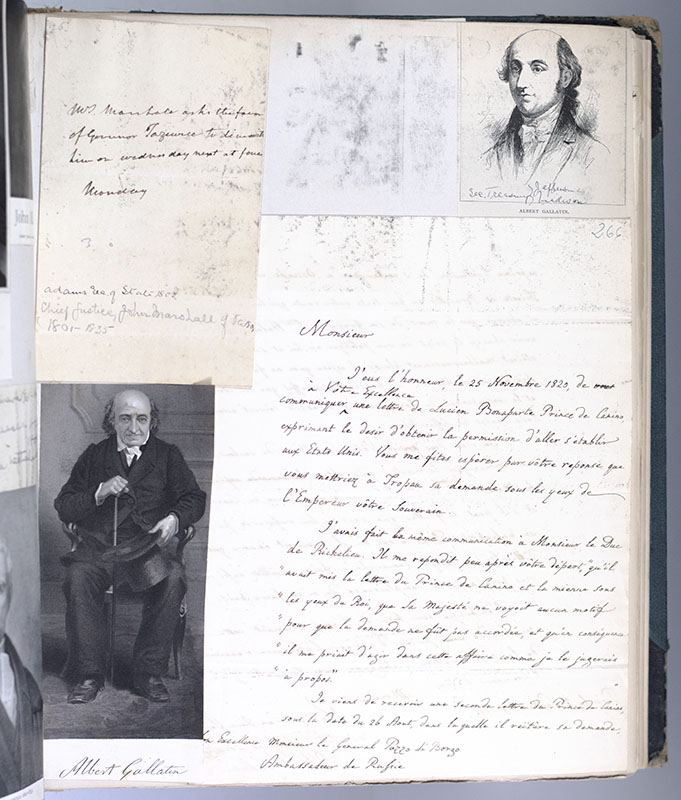 Mr. Marshall asks the favor
of Governor Tazewell to dine with
him on wednesday next at four
Monday
3
adams Sec. of State
Chief Justice, John Marshall of
1801 - 1835
Sec. Treasury Jefferson
Madison
ALBERT GALLATIN.
266
Monsieur
J'eus l'honneur, le 25 Novembre 1820, de
à Votre Excellence
communiquer une lettre de Lucien Bonaparte Prince de Canino
exprimant le desir d'obtenir la permission d'aller s'établir
aux Etats Unis. Vous me fites espérer par vôtre reponse que
vous mettriez à Tropau sa demande sous les yeux de
l'Empereur vôtre Souverain.
J'avais fait la même communication à Monsieur le Duc
de Richelieu. Il me repondit peu après vôtre départ "qu'il
"avait mis la lettre du Prince de Canino et la mienne sous
"les yeux du Roi, que Sa Majesté ne voyoit aucun motif
"pour que la demande ne fut pas accordée, et qu'en consequence
"il me priait d'agir dans cette affaire comme je le jugerais
"à propos."
Je viens de recevoir une seconde lettre du Prince de Canino,
sous la date du 26 Aout, dans laquelle il réitère sa demande,
Son Excellence Monsieur le General Pozzo di Borgo
Ambassadeur de Russie
Albert Gallatin